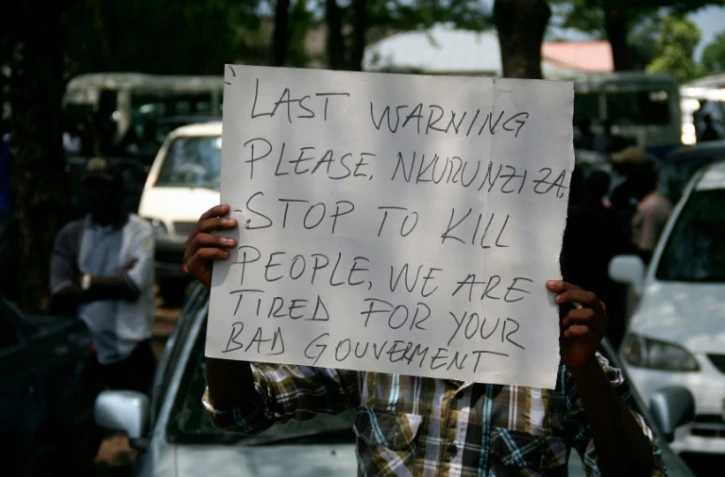 LAST WARNING
PLEASE, NKURUNZIZA,
STOP TO KILL
PEOPLE, WE ARE
TIRED FOR YOUR
BAD GOUVERMENT